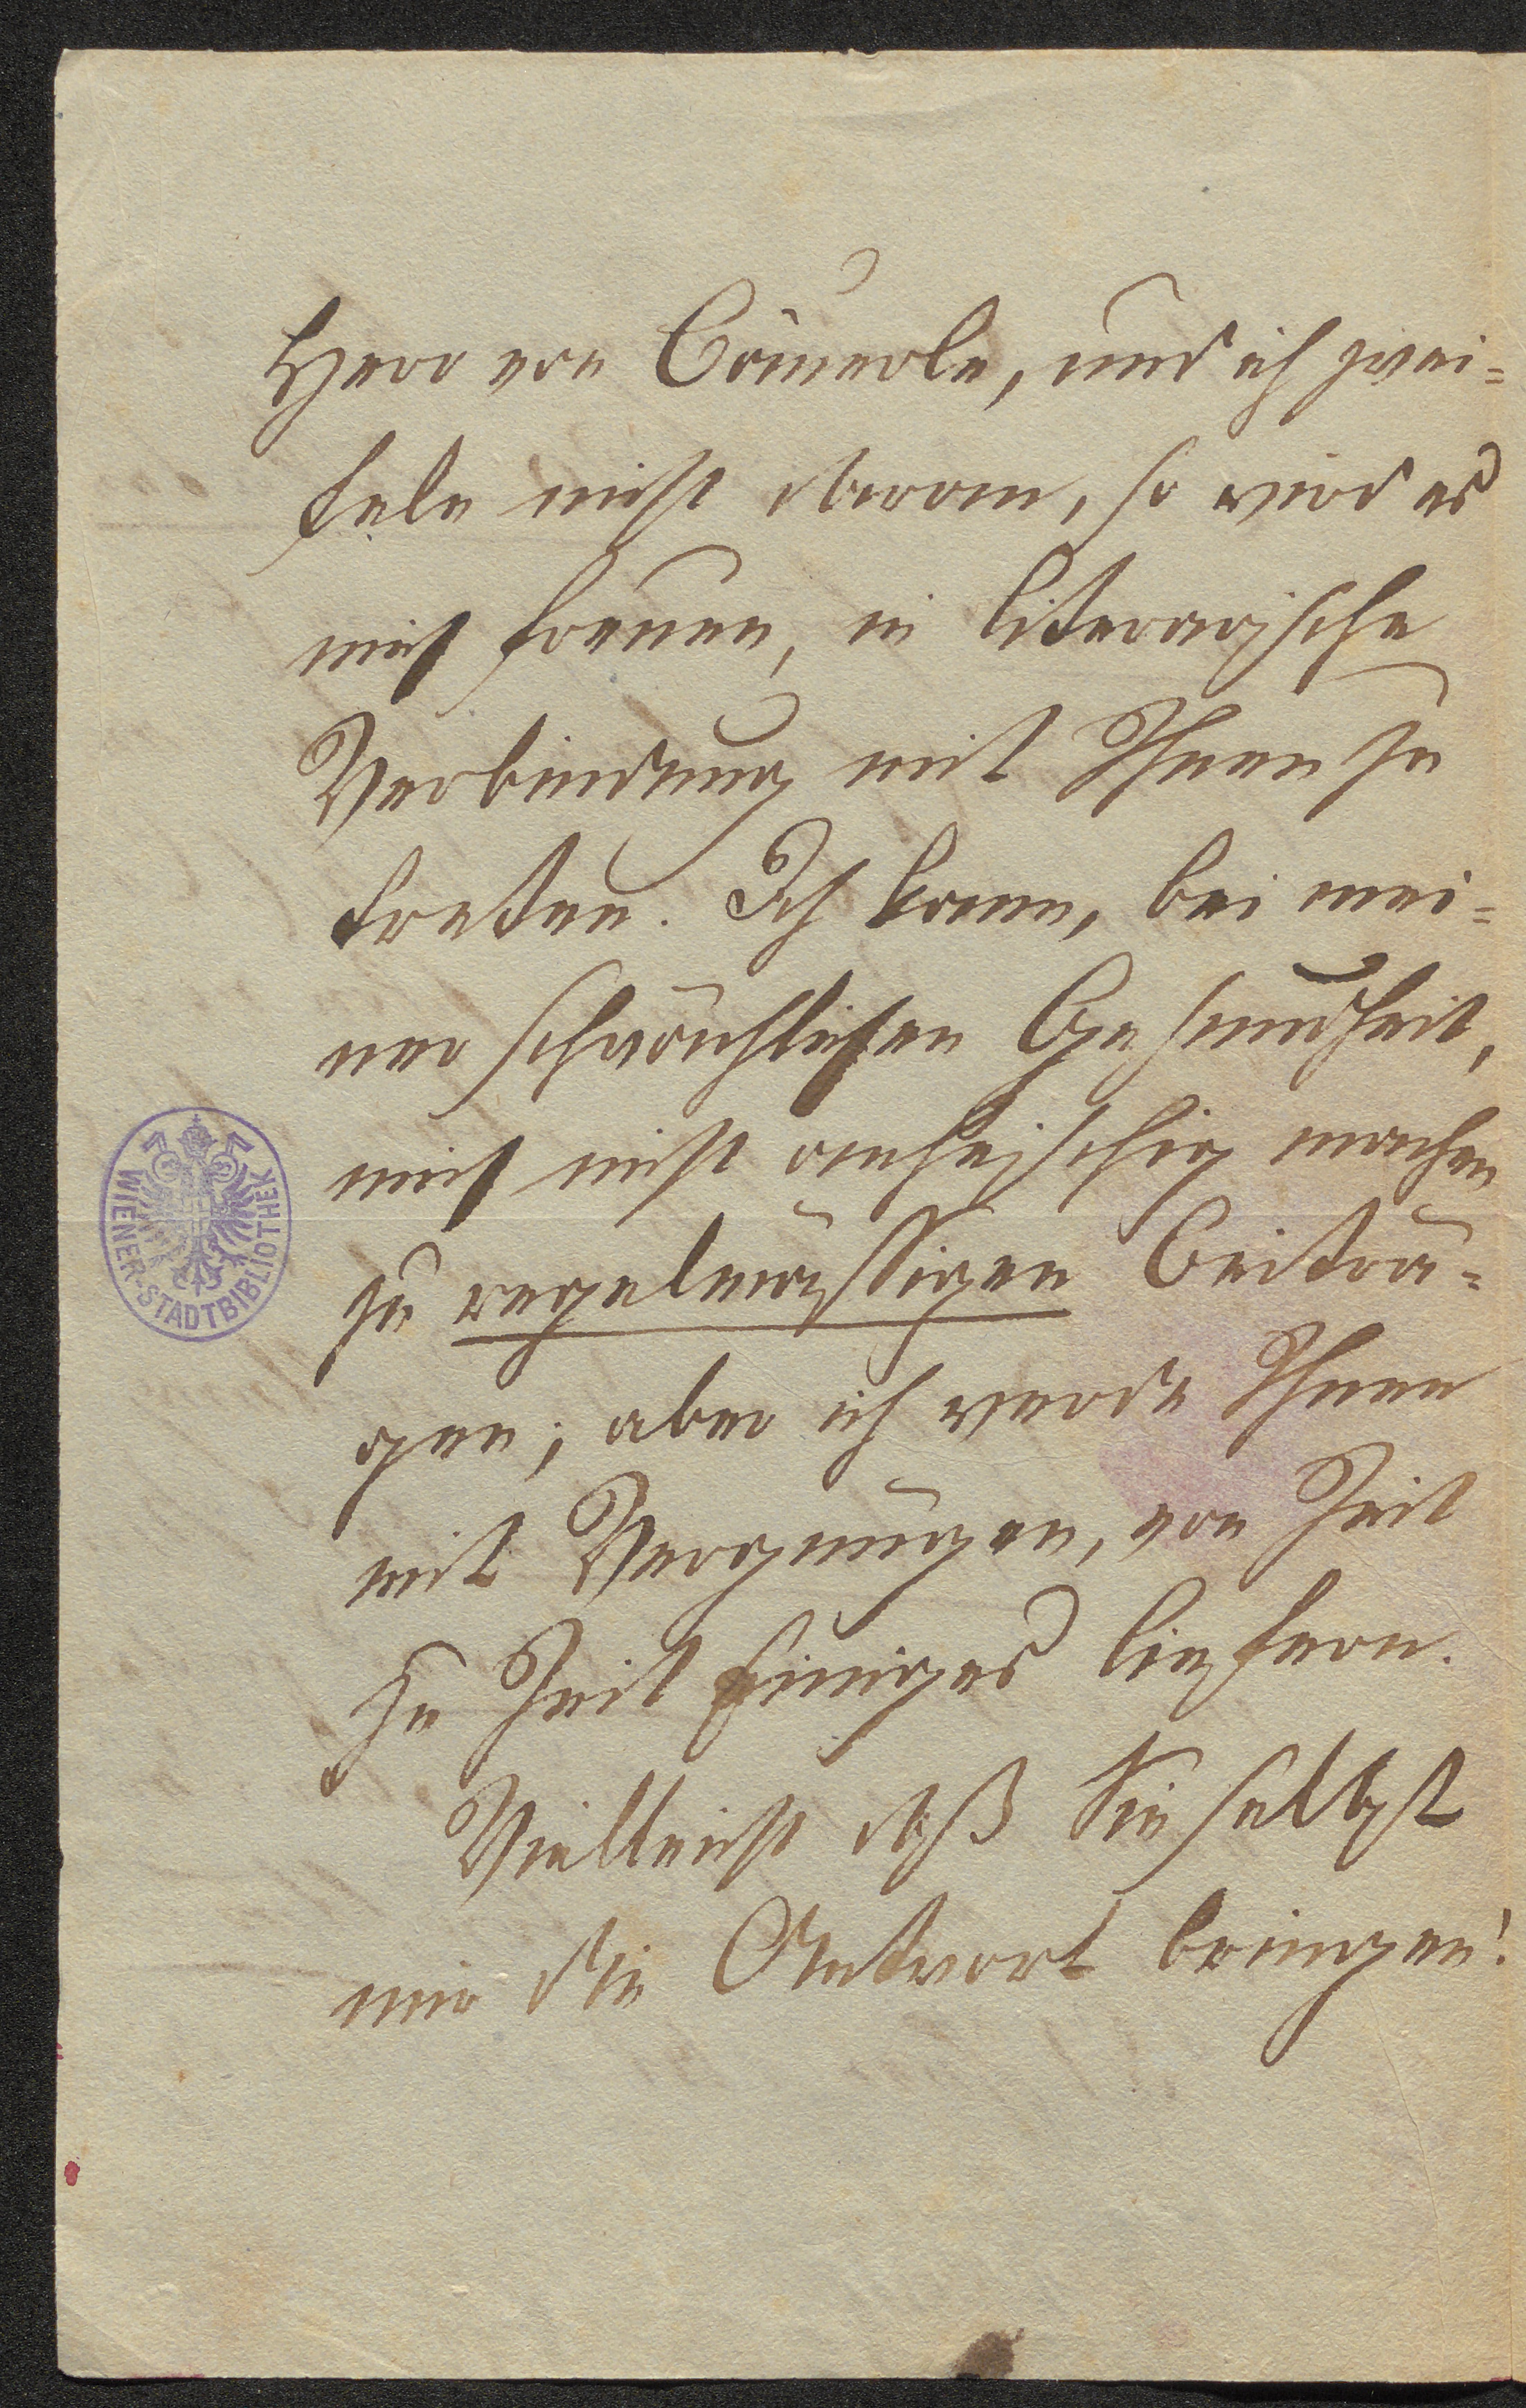 Herr von Bäuerle, und ich zwei=
feln nicht daran, so wird es
mich freuen, in literarische
Verbindung mit Ihnen zu
treten. Ich kann, bei mei=
ner schwächlichen Gesundheit,
mich nicht anheischig machen
zu regelmässigen Beiträ=
gen; aber ich werde Ihnen
mit Vergnügen, von Zeit
zu Zeit Einiges liefern.
Vielleicht daß Sie selbst
mir die Antwort bringen!
WIENER-STADTBIBLIOTHEK